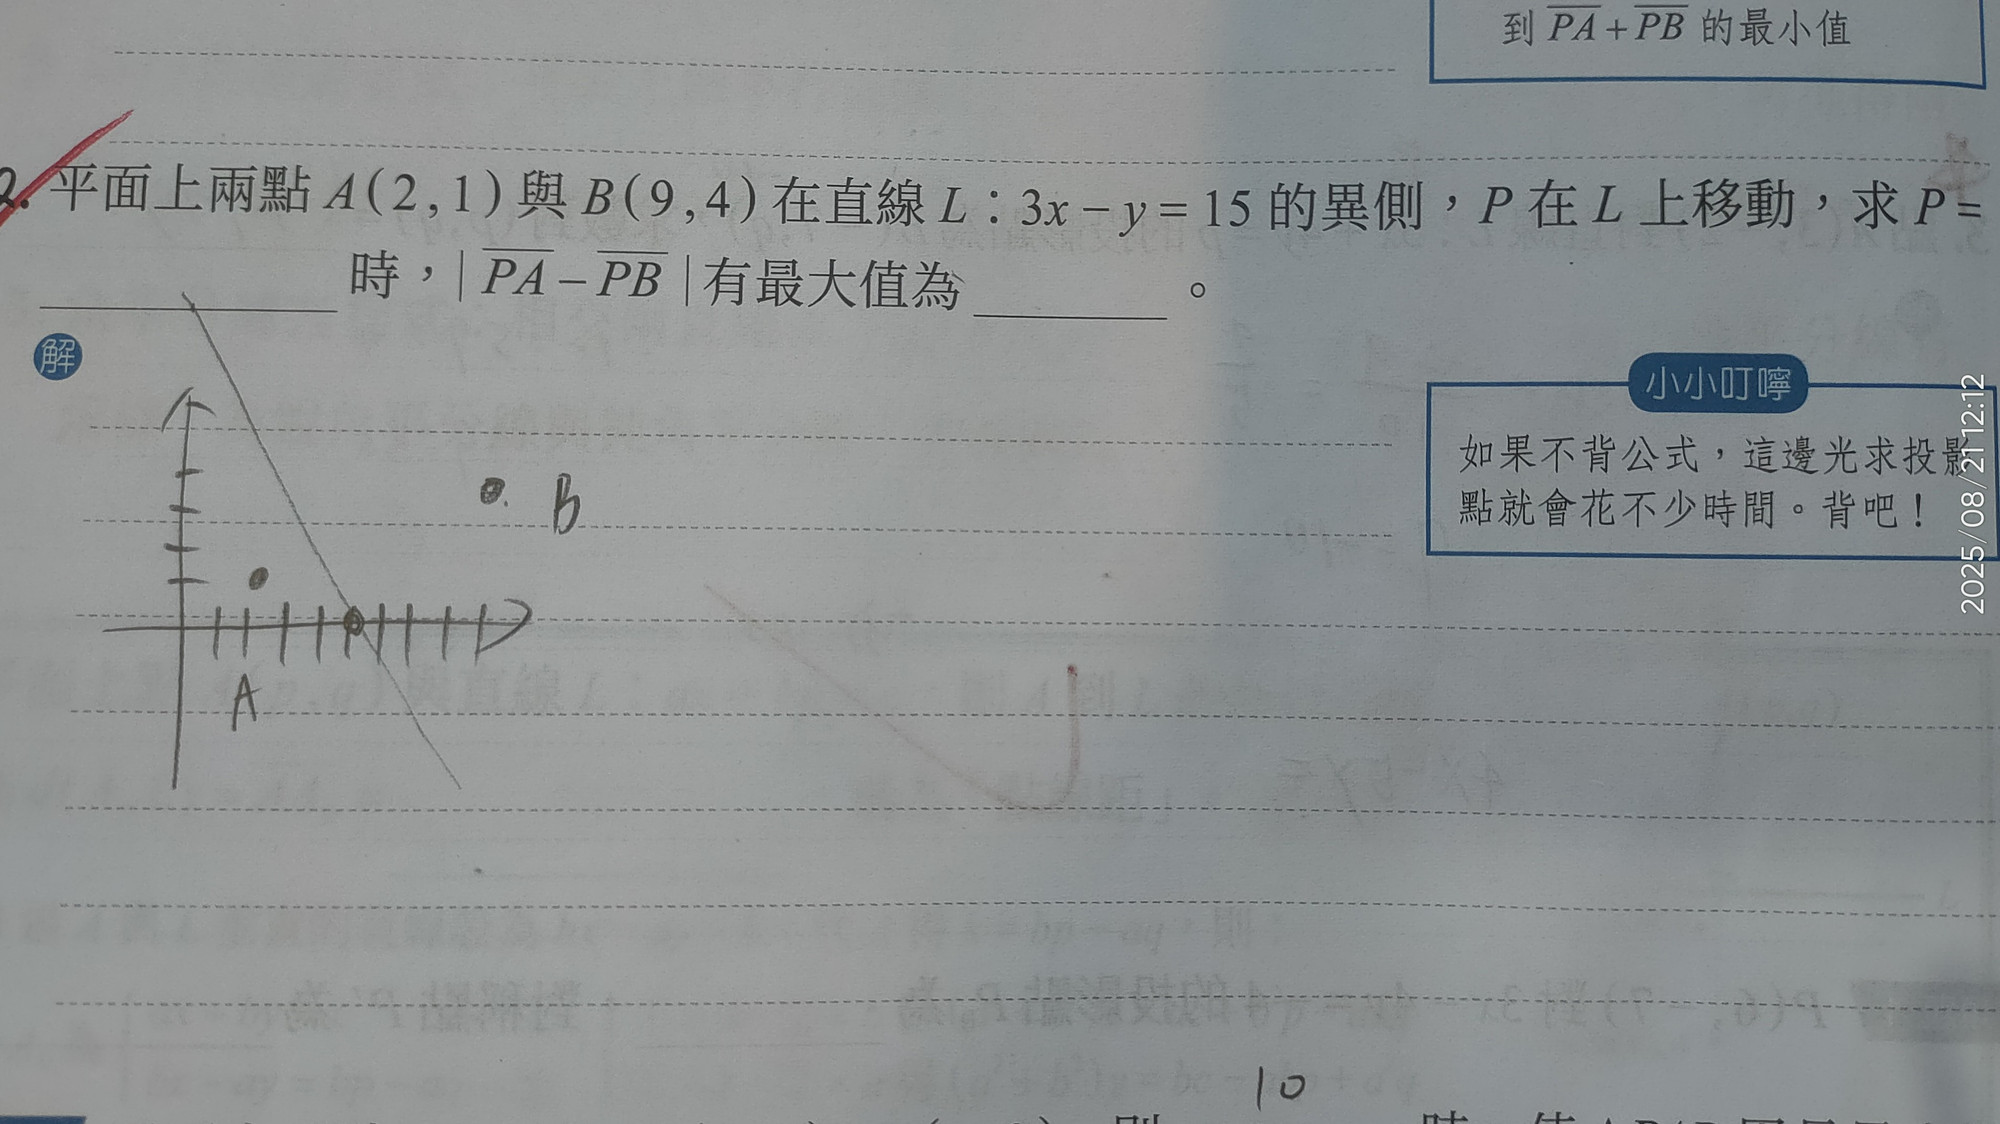 到 PA + PB 的最小值
2. 平面上兩點 A(2,1) 與 B(9,4) 在直線 L：3x－y＝15 的異側，P 在 L 上移動，求 P＝
________ 時，| PA－PB | 有最大值為 ________ 。
解
小小叮嚀
如果不背公式，這邊光求投影
點就會花不少時間。背吧！
B
A
2025/08/21 12:12
10